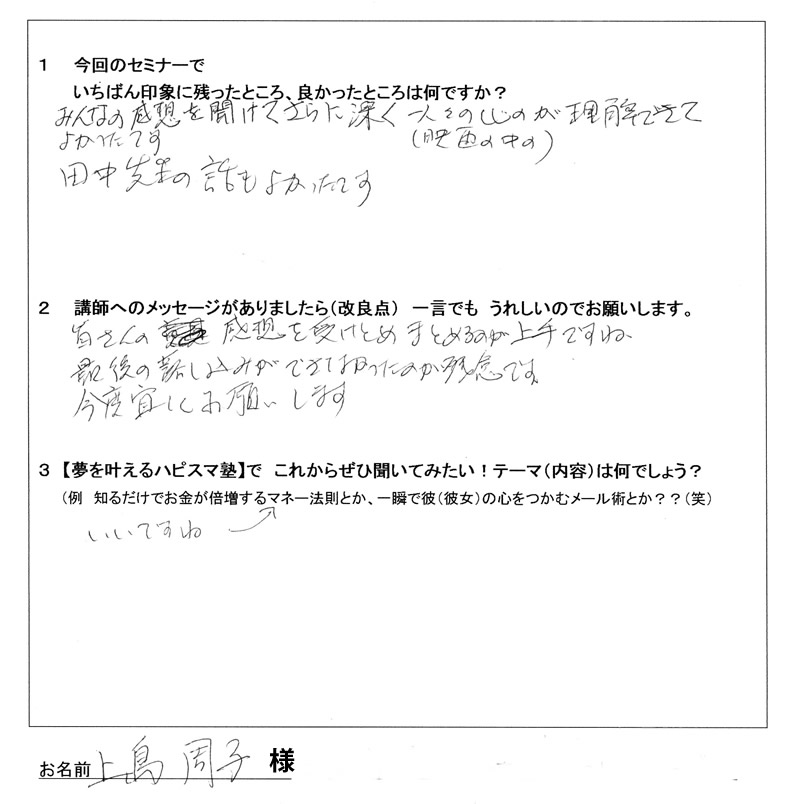 1 今回のセミナーで
いちばん印象に残ったところ、良かったところは何ですか？
みんなの感想を聞けてさらに深く人々の心のが理解できて
よかったです (映画の中の)
田中先生の話もよかったです
2 講師へのメッセージがありましたら（改良点） 一言でも うれしいのでお願いします。
皆さんの 感想を受けとめまとめるのが上手ですね、
最後の話し込みができなかったのが残念です。
今度宜しくお願いします
3 【夢を叶えるハピスマ塾】で これからぜひ聞いてみたい！テーマ（内容）は何でしょう？
（例 知るだけでお金が倍増するマネー法則とか、一瞬で彼（彼女）の心をつかむメール術とか？？（笑）
いいですね
お名前 上島 周子 様